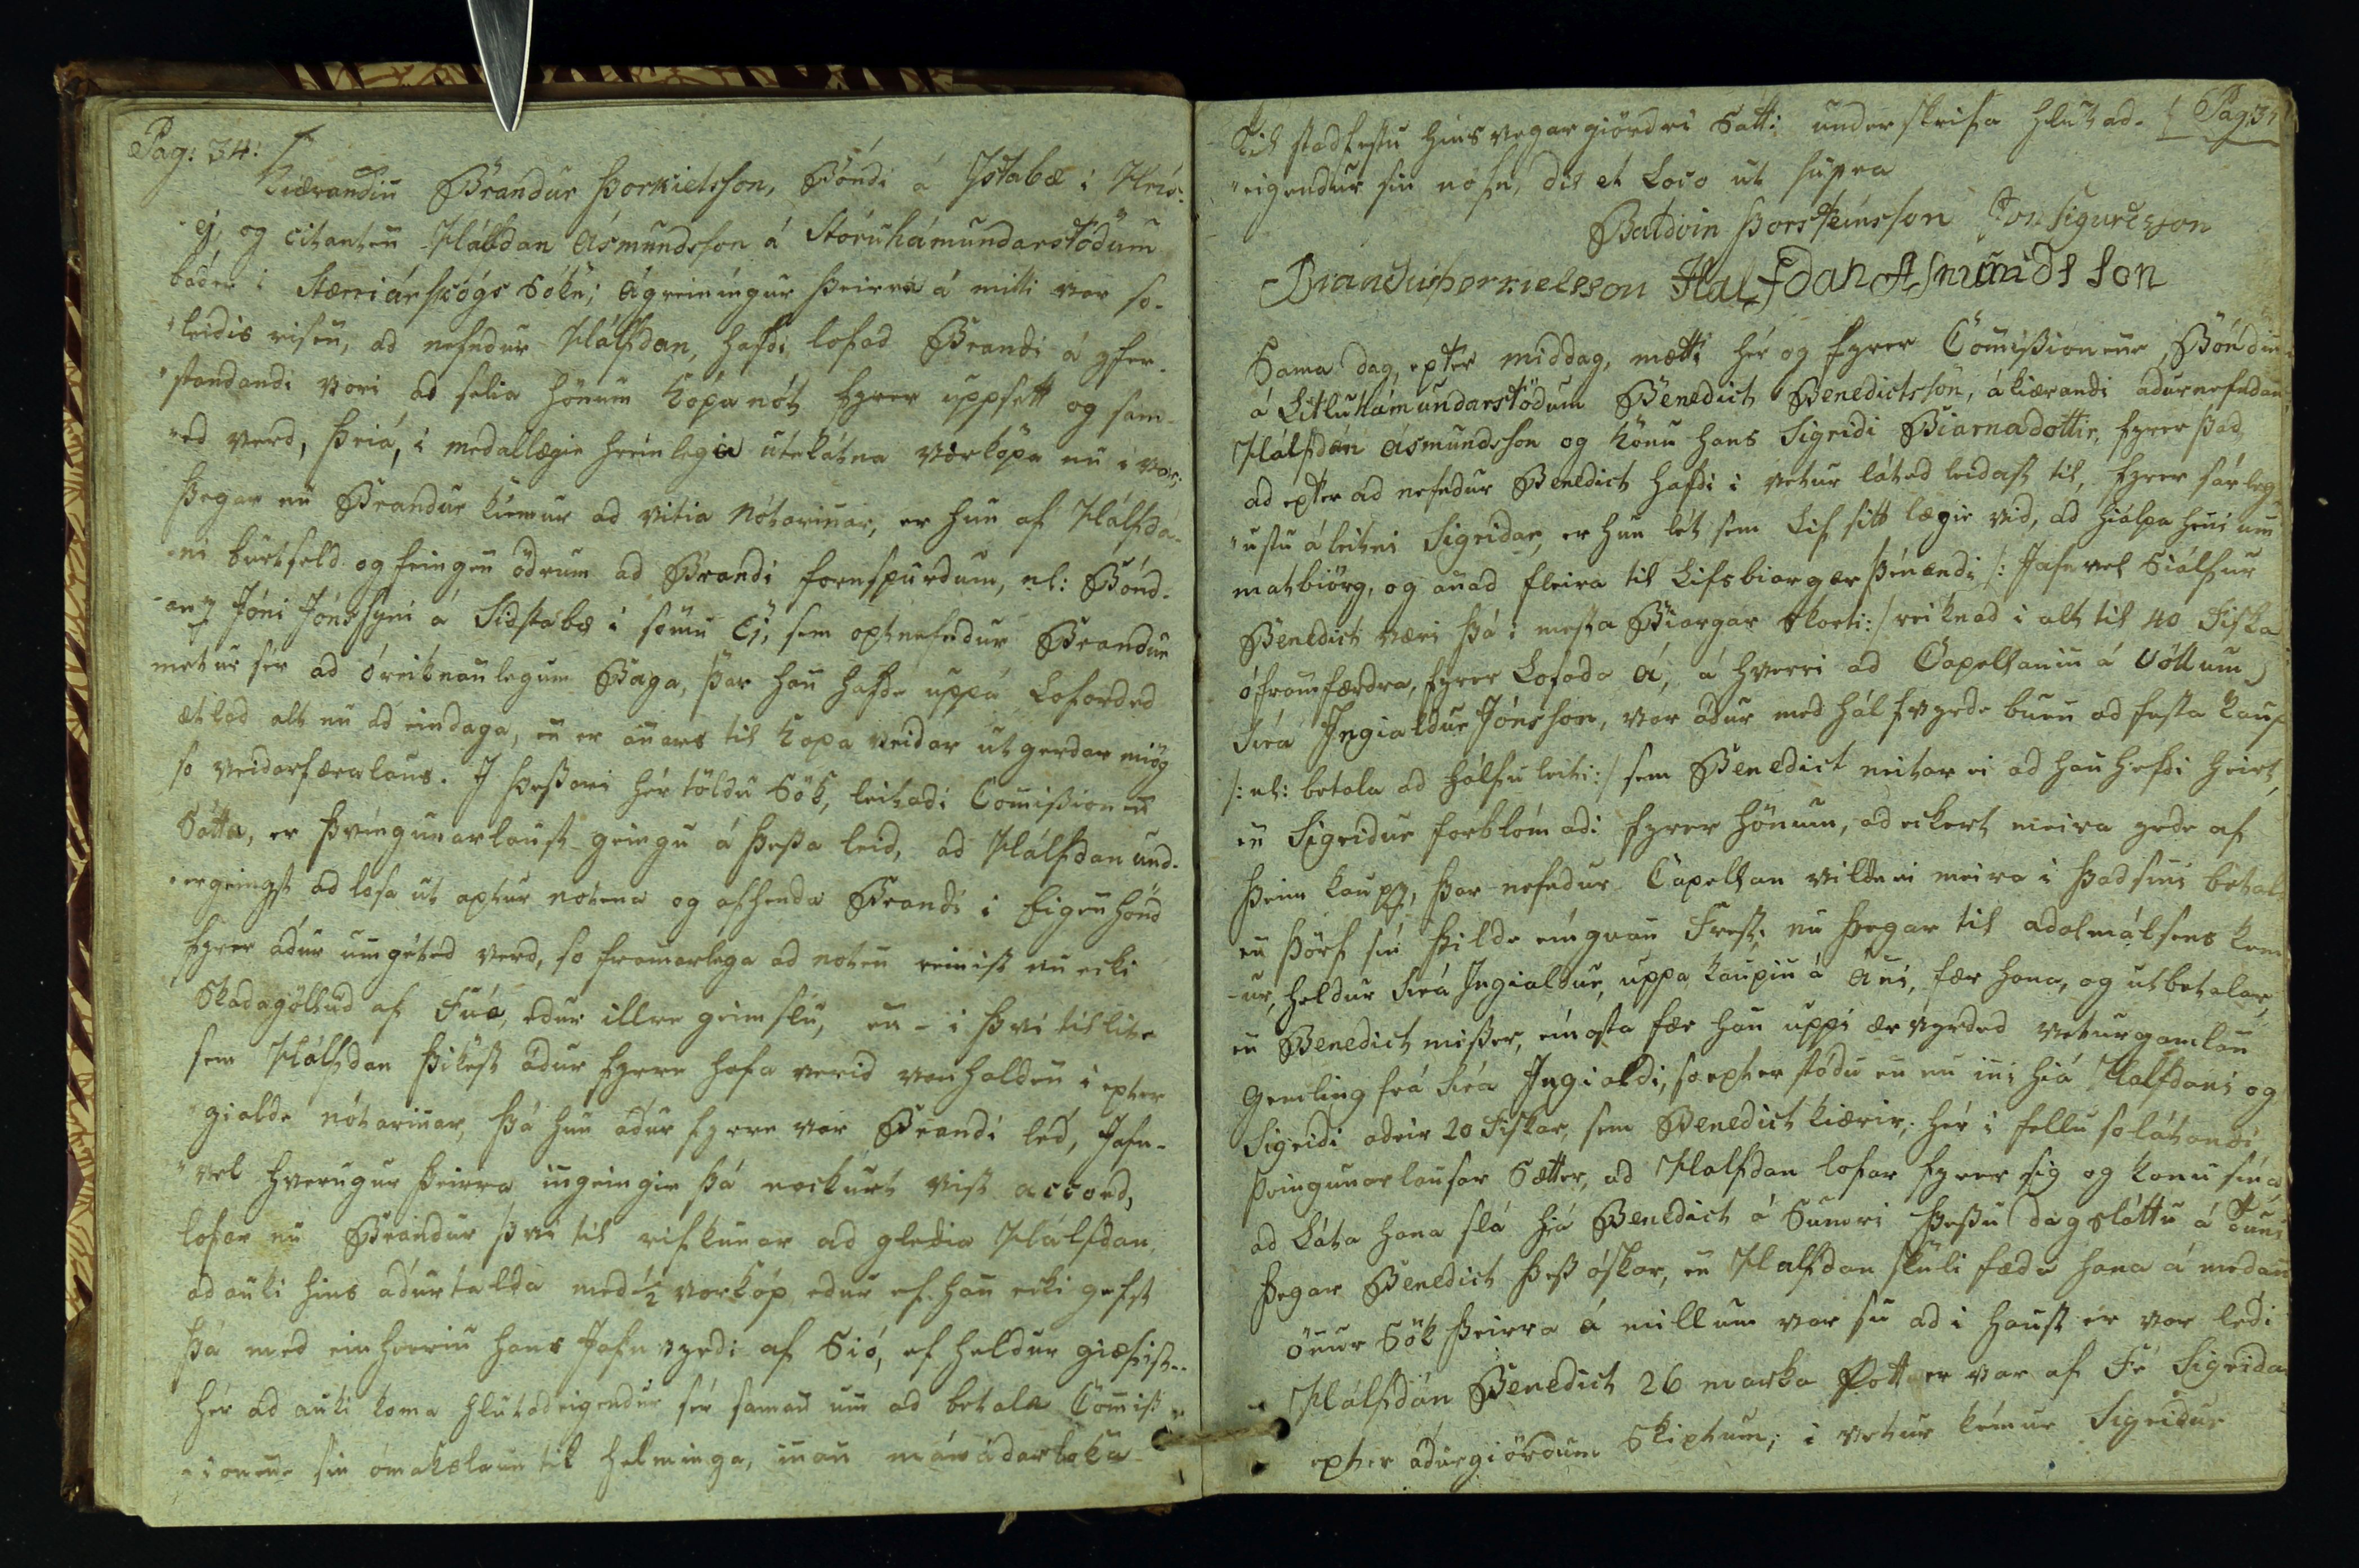 Pag: 34:
Kiærandin Brandur Þorkielsson, Bóndi á Ystabæ i Hrís-
"ej, og citanten Hálfdan Ásmundsson á Stóruhámundarstödum
báder i Stærriárskógs Sókn; ágreiningur þeirra á milli var so-
"leidis risen, ad nefndur Hálfdan, hafdi lofad Brandi á yfer-
"standandi vori ad selia hönum Kópanót fyrer uppsett og sam-
"ed verd, þriá, i medallægie hreinlegia útelátna vorkópa nú i vor;
þegar nú Brandur kiemur ad vitia Nótarinar, er hun af Hálfda-
-ni burtseld og feingen ödrum ad Brandi fornspurdum, nl: Bónd-
-anū Jóni Jónssyni á Sidstabæ i sömu Ej, sem optnefndur Brandur
metur sér ad óreiknanlegum Baga, þar han hafde uppá Loforded
ætlad alt nú ad eindaga, en er anars til Kópa veidar útgerdar miög
so veidarfæralaus. I þessari hér töldu Sök, leitadi Comissionen
Sátta, er þvíngunarlaust geingu á þessa leid, ad Hálfdan und-
"ergeingst ad losa út aptur nótena og afhenda Brandi i Eigenhönd
fyrer ádur umgéted verd, so framarlega ad nóten reinist nú ecki
Skadagöllud af Fúa, edur illre geimslu, en i þvi tilliti
sem Hálfdan þikest ádur fyrre hafa verid vanhalden i epter
gialde nótarinar, þá hun ádur fyrre var Brandi léd, Jafn-
"vel hverugur þeirra ingeingie þá nockurt vist accord,
lofar nú Brandur þvi til rifkunar ad gledia Hálfdan
ad auki hins ádurtalda med ½ vorkóp edur ef han ecki gefst
þá med einhveriu hans Jafnvyrdi af Sió, ef heldur giæfist..
hér ad auki koma hlutadeigendur sér saman um ad betala Comiss
-ionene sin ómakslaun til helminga, inan mánadarloka

Til stadfestu hinsvegar giördri Sátt; underskrifa hlutad- Pag: 3
"eigendur sin nöfn, die et Loco ut supra
Baldvin Þorsteinsson Jon Sigurdsson
Brandur Þorkielsson Halfdan Asmundsson
Sama dag, epter middag, mætti hér og fyrer Comissionene, Bóndin
á LitluHámundarstödum Benedict Benedictsson, ákiærandi ádurnefndan
Hálfdán Ásmundsson og Konu hans Sigridi Biarnadottir, fyrer þad
ad epter ad nefndur Benedict hafdi i vetur láted leidast til, fyrer sárleg
"ustu áleitni Sigridar, er hun lét sem Lif sitt lægie vid, ad hiálpa heni um
matbiörg, og anad fleira til Lifsbiargar þénandi /: Jafnvel Siálfur
Benedict væri þá i mesta Biargar skorti:/ reiknad i alt til 40 Fiska
óframfærdra, fyrer Lofada Á, á hverri ad Capellanin á Völlum
Síra Ingialdur Jónsson, var ádur med hálfvyrde buen ad festa kaup
/: nl: betala ad hálfu leiti:/ sem Benedict neitar ei ad han hefdi heirt,
en Sigridur forklómadi fyrer hönum, ad eckert meira yrde af
þeim kaupū, þar nefndur Capellan vilde ei meira i þad sini betala
en þörf sin þilde eingvan Frest; nú þegar til adalmálsens kem
-ur, heldur Síra Ingialdur, uppá kaupin á Áni, fær hana, og útbetalar,
en Benedict misser, einasta fær han uppi ærvyrded veturgamlan
Gemling frá Síra Ingialdi, so epter stódu en nú ini hiá Halfdani og
Sigridi adrir 20 Fiskar, sem Benedict kiærir, hér i fellu so látandi
þvingunarlausar Sætter, ad Halfdan lofar fyrer sig og Konu sina
ad Láta hana slá hiá Benedict á Sumri þessu dagsláttu á Túni
þegar Benedict þess óskar, en Halfdan skuli fæda hana á medan
Önur Sök þeirra á millum var su ad i haust er var ledi
Hálfdán Benedict 26 marka Pott er var af Fé Sigridar
epter ádurgiördum Skiptum; i vetur kiemur Sigridur